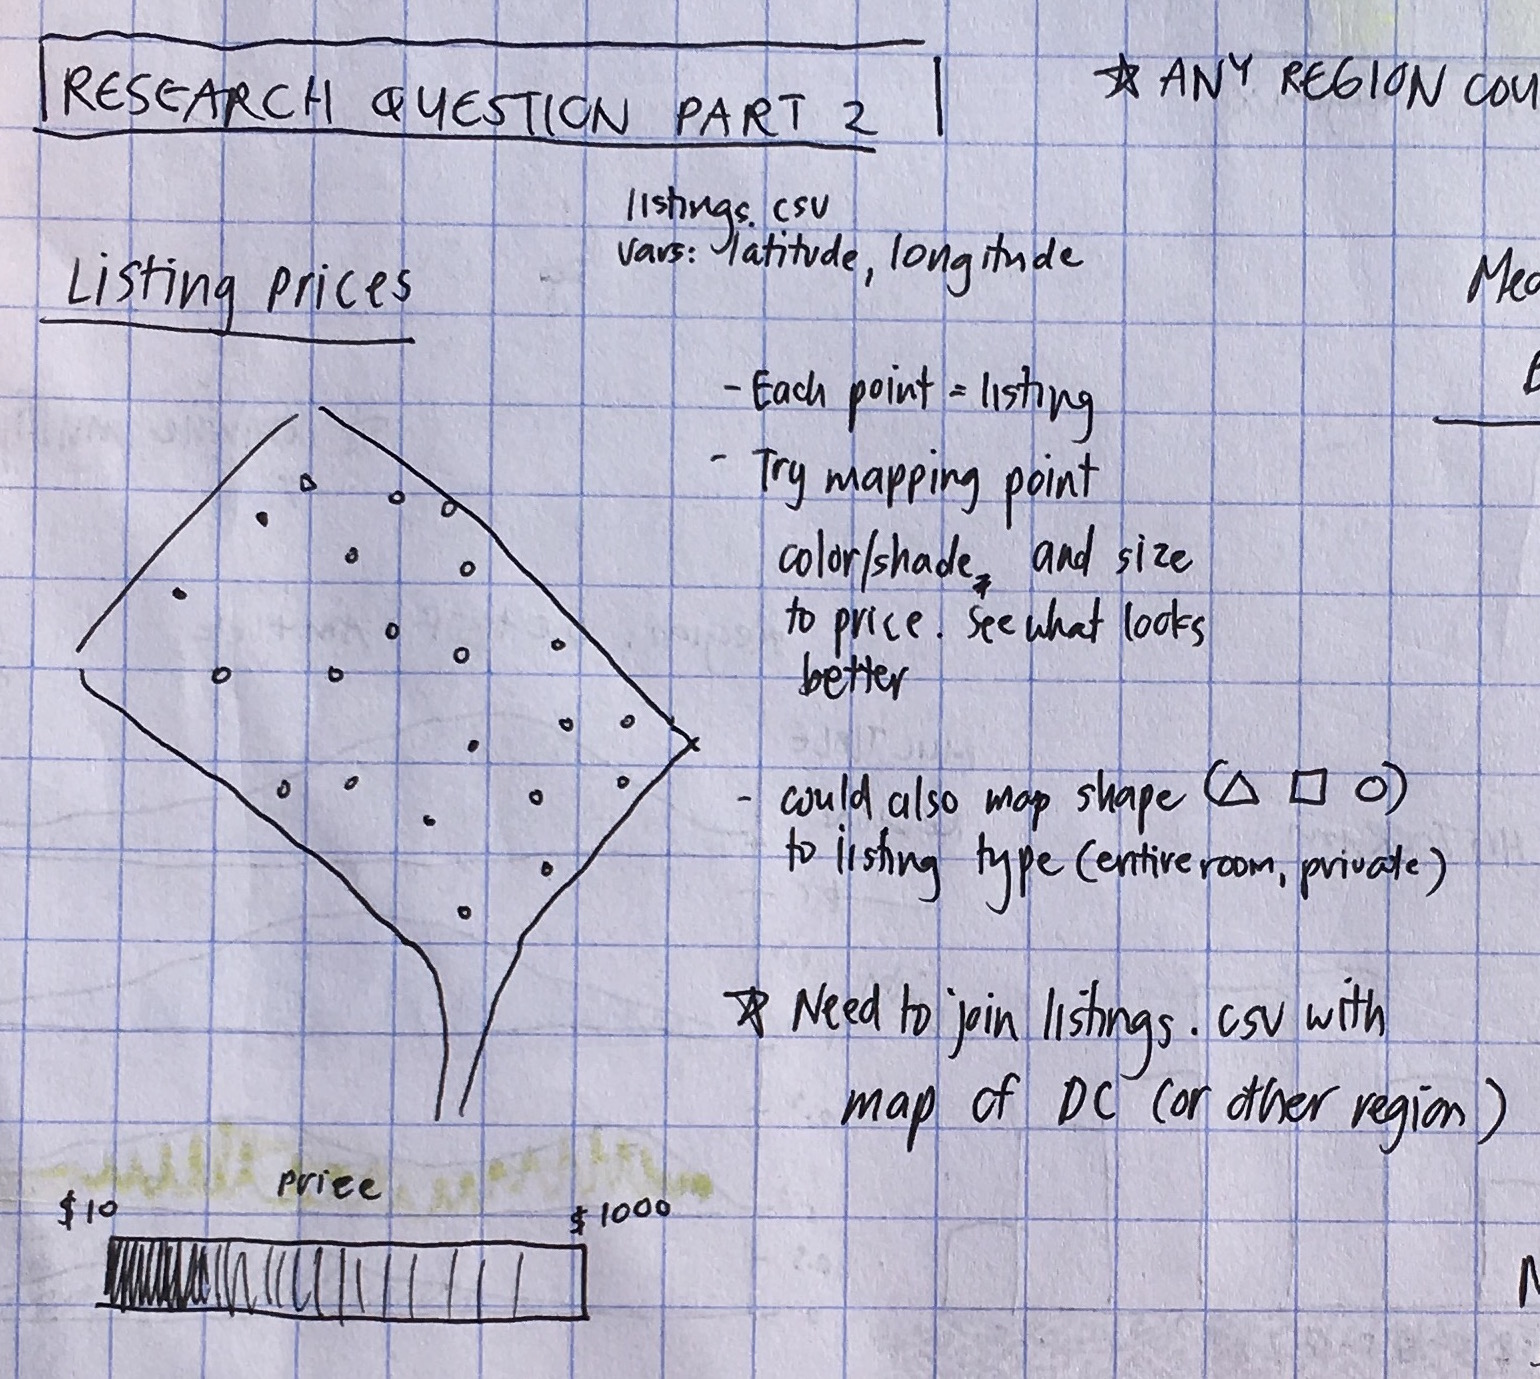 RESEARCH QUESTION PART 2
☆ ANY REGION COU
listings.csv
vars: latitude, longitude
Listing prices
- Each point = listing
- Try mapping point
color/shade, and size
to price. See what looks
better
- could also map shape (△ □ ○)
to listing type (entire room, private)
☆ Need to join listings.csv with
map of DC (or other region)
price
$10 $1000